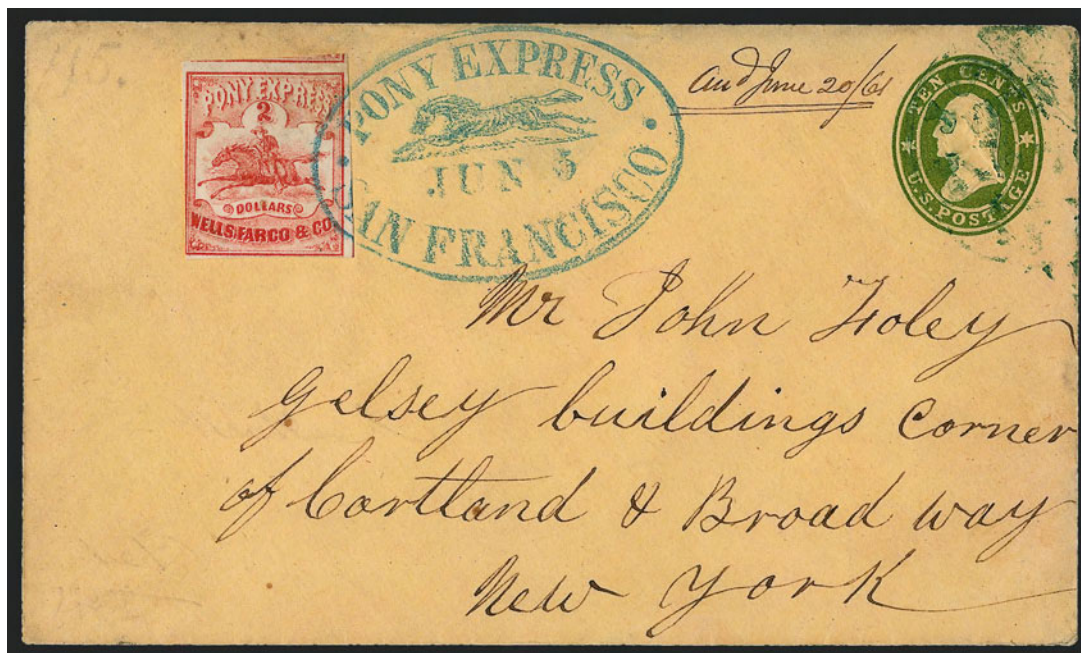 PONY EXPRESS
2
DOLLARS
WELLS, FARGO & CO.
PONY EXPRESS
JUN 5
SAN FRANCISCO
June 20/61
TEN CENTS
U.S. POSTAGE
Mr John Foley
Gelsey buildings Corner
of Cortland & Broad way
New York